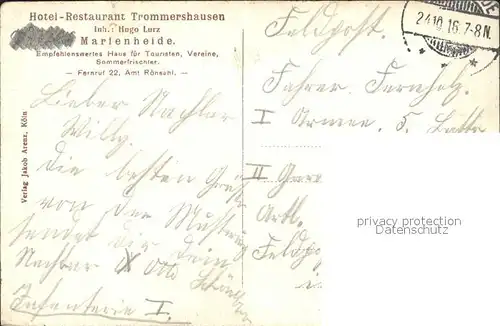 Hotel-Restaurant Trommershausen
Inh.: Hugo Lurz
Marienheide.
Empfehlenswertes Haus für Touristen, Vereine,
Sommerfrischler.
— Fernruf 22, Amt Rönsahl. —
Verlag Jakob Arenz, Köln
Lieber Nachbar
Willy.
Die besten Grüße
von der Musterung
sendet dir dein
Nachbar Otto
Infanterie I.
Feldpost.
24.10.16. 7-8N.
Fahrer
I Armee. 5.
II
Artl.
privacy protection
Datenschutz